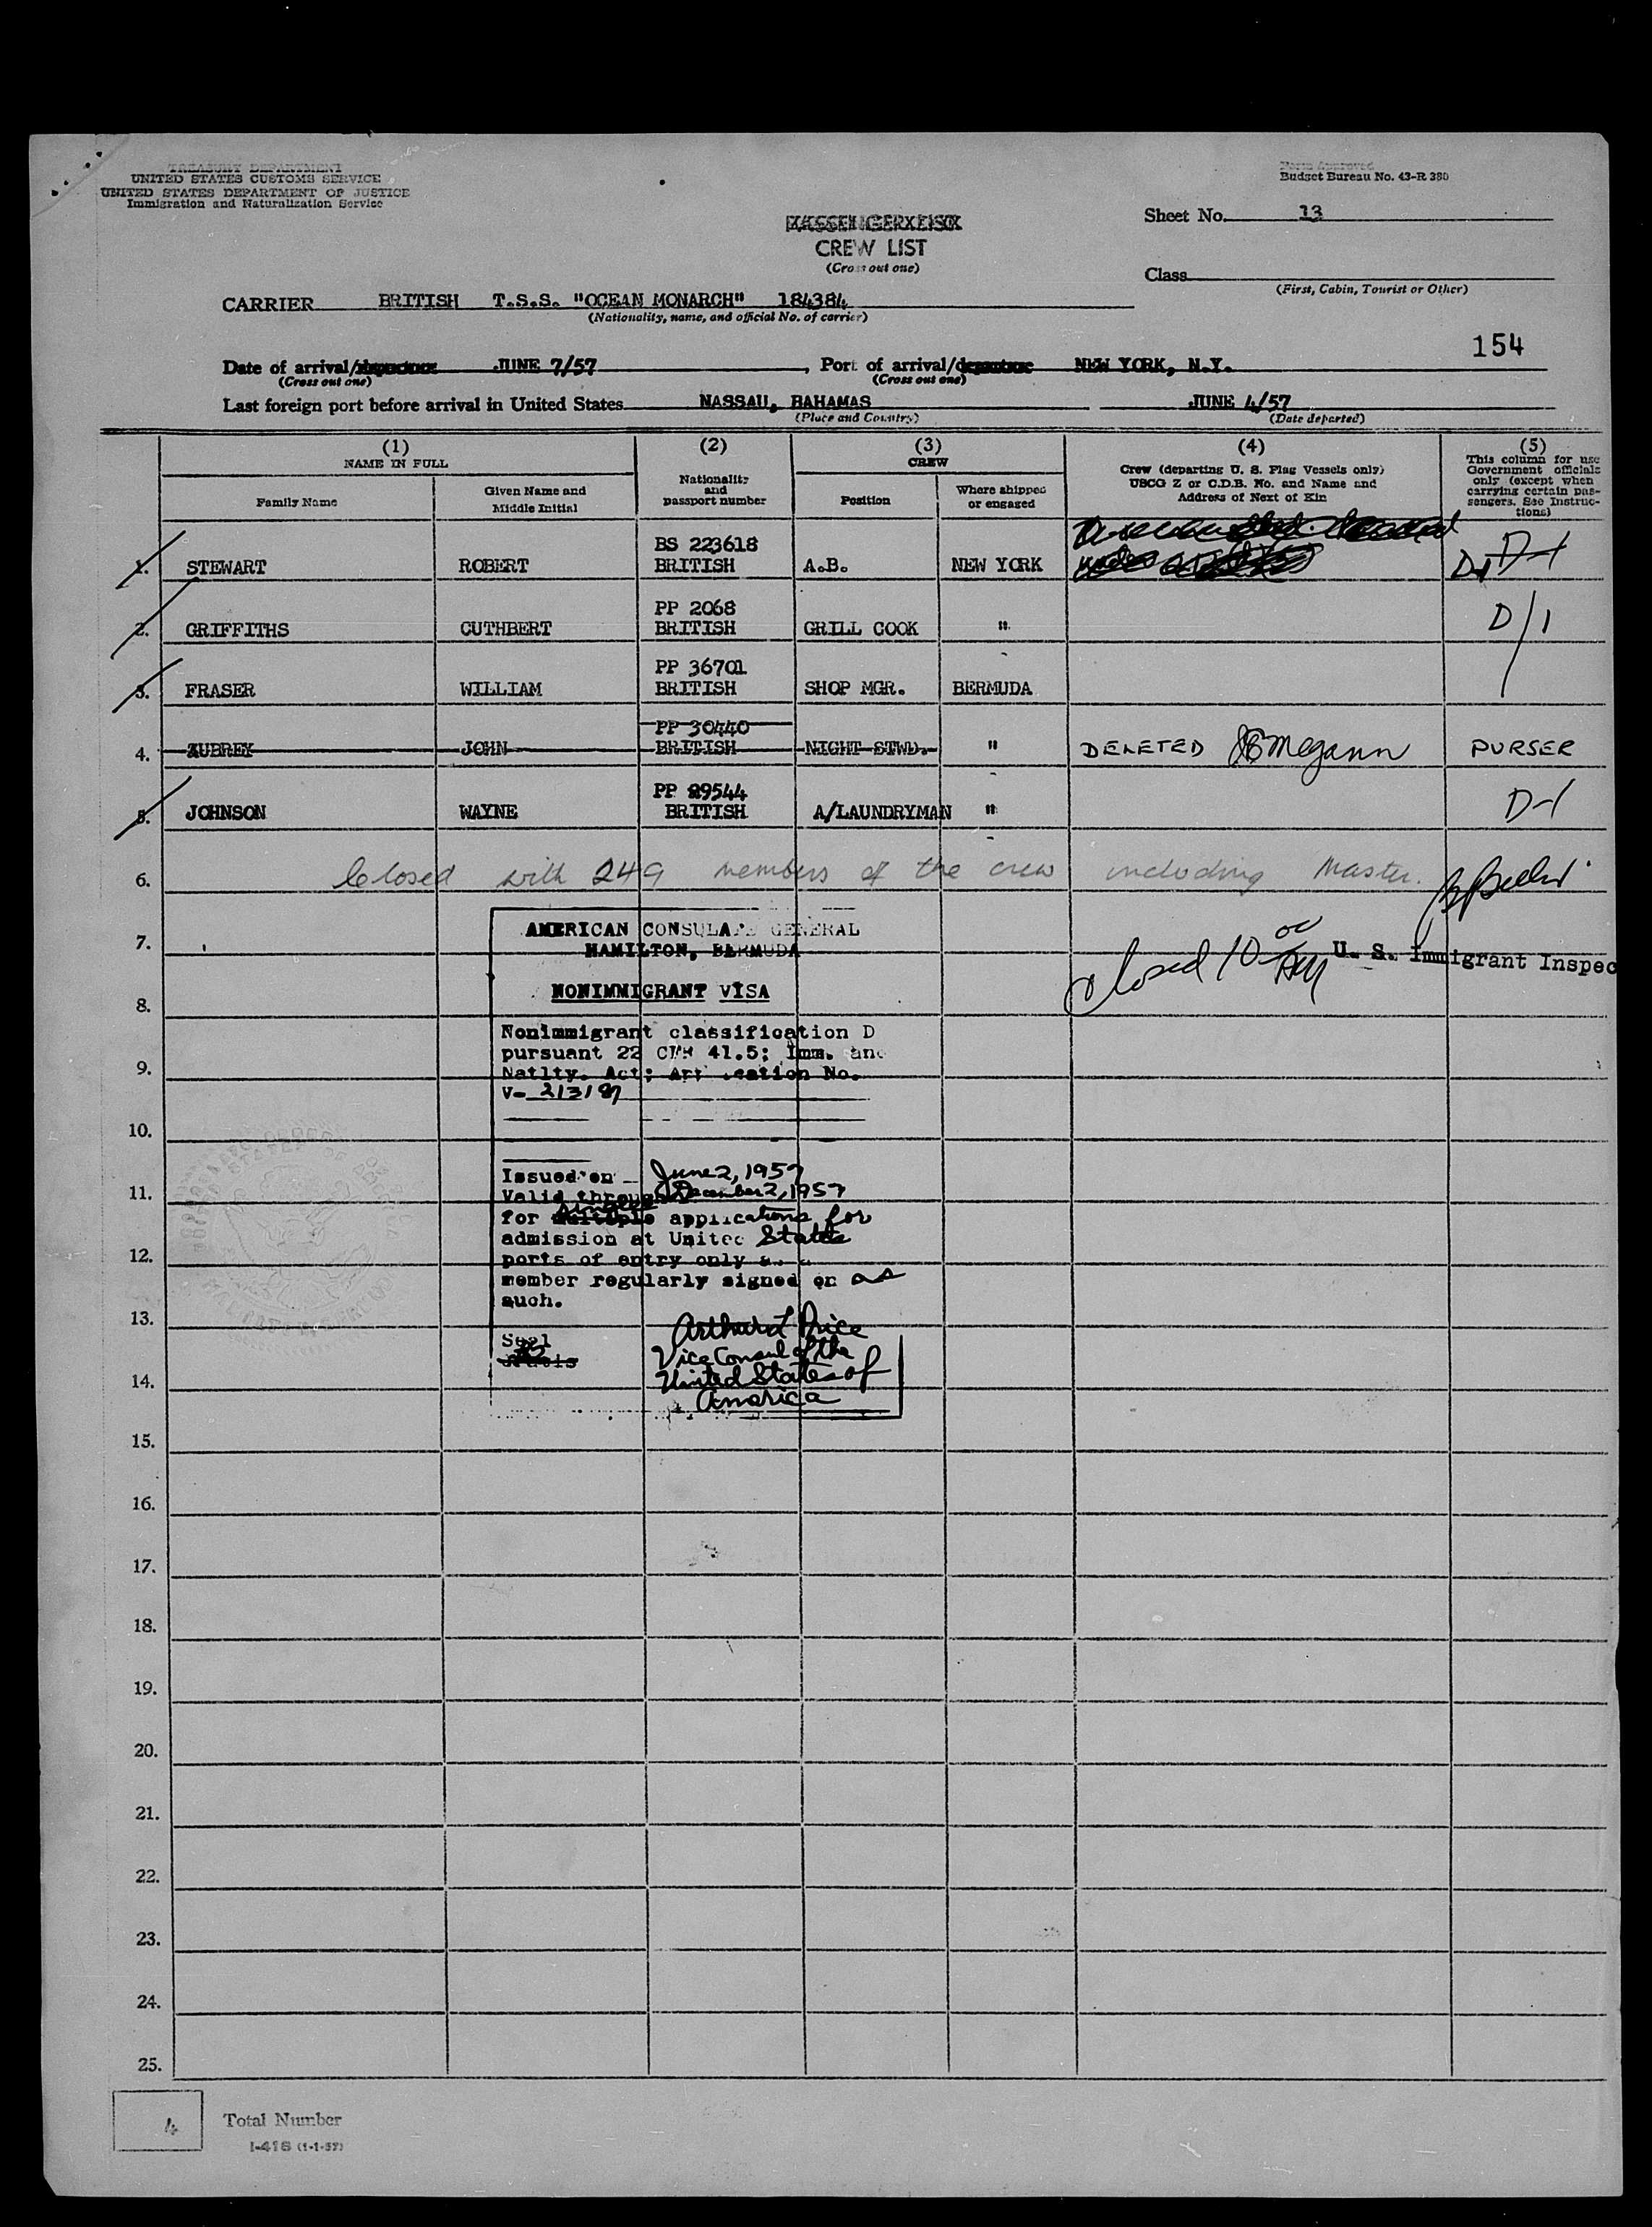 TREASURY DEPARTMENT
UNITED STATES CUSTOMS SERVICE
UNITED STATES DEPARTMENT OF JUSTICE
Immigration and Naturalization Service
Form Approved
Budget Bureau No. 43-R 380
Sheet No. 13
PASSENGER LIST
CREW LIST
(Cross out one)
Class
(First, Cabin, Tourist or Other)
CARRIER BRITISH T.S.S. "OCEAN MONARCH" 184384
(Nationality, name, and official No. of carrier)
154
Date of arrival/departure JUNE 7/57, Port of arrival/departure NEW YORK, N.Y.
(Cross out one) (Cross out one)
Last foreign port before arrival in United States NASSAU, BAHAMAS JUNE 4/57
(Place and Country) (Date departed)
(1) (2) (3) (4) (5)
NAME IN FULL
Family Name
Given Name and Middle Initial
Nationality and passport number
CREW
Position
Where shipped or engaged
Crew (departing U. S. Flag Vessels only)
USCG Z or C.D.B. No. and Name and
Address of Next of Kin
This column for use
Government officials
only (except when
carrying certain pas-
sengers. See Instruc-
tions)
BS 223618
1. STEWART ROBERT BRITISH A.B. NEW YORK D-1 D-1
PP 2068
2. GRIFFITHS CUTHBERT BRITISH GRILL COOK " D/1
PP 36701
3. FRASER WILLIAM BRITISH SHOP MGR. BERMUDA
PP 30440
4. AUBREY JOHN BRITISH NIGHT STWD. " DELETED PURSER
PP 89544
5. JOHNSON WAYNE BRITISH A/LAUNDRYMAN " D-1
6. Closed with 249 members of the crew including Master.
AMERICAN CONSULATE GENERAL
7. HAMILTON, BERMUDA
closed 10 00 AM U. S. Immigrant Inspec
NONIMMIGRANT VISA
8.
Nonimmigrant classification D
pursuant 22 CFR 41.5; Imm. and
9. Natlty. Act; Application No.
V- 213187
10.
Issued on June 2, 1957
11. Valid through December 2, 1957
for multiple single applications for
admission at United States
12. ports of entry only as a
member regularly signed on as
such.
13.
Arthur J Price
Seal
Vice Consul of the
14. United States of
America
15.
16.
17.
18.
19.
20.
21.
22.
23.
24.
25.
4 Total Number
I-418 (1-1-57)